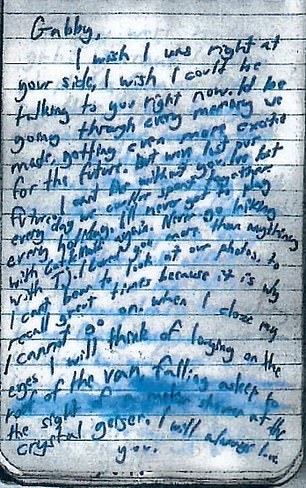 Gabby,
I wish I was right at
your side, I wish I could be
talking to you right now. Id be
going through every memory we
made, getting even more excited
for the future. But we've lost our
future. I cant live without you, Ive lost
every day we could've spent together,
every holiday. I'll never get to play
with again. Never go hiking
with TJ. I loved you more than anything
I cant bear to look at our photos, to
recall great times because it is why
I cannot go on. When I close my
eyes I will think of laughing on the
roof of the van, falling asleep to
the sight of a meteor shower at the
crystal geyser. I will always love
you.